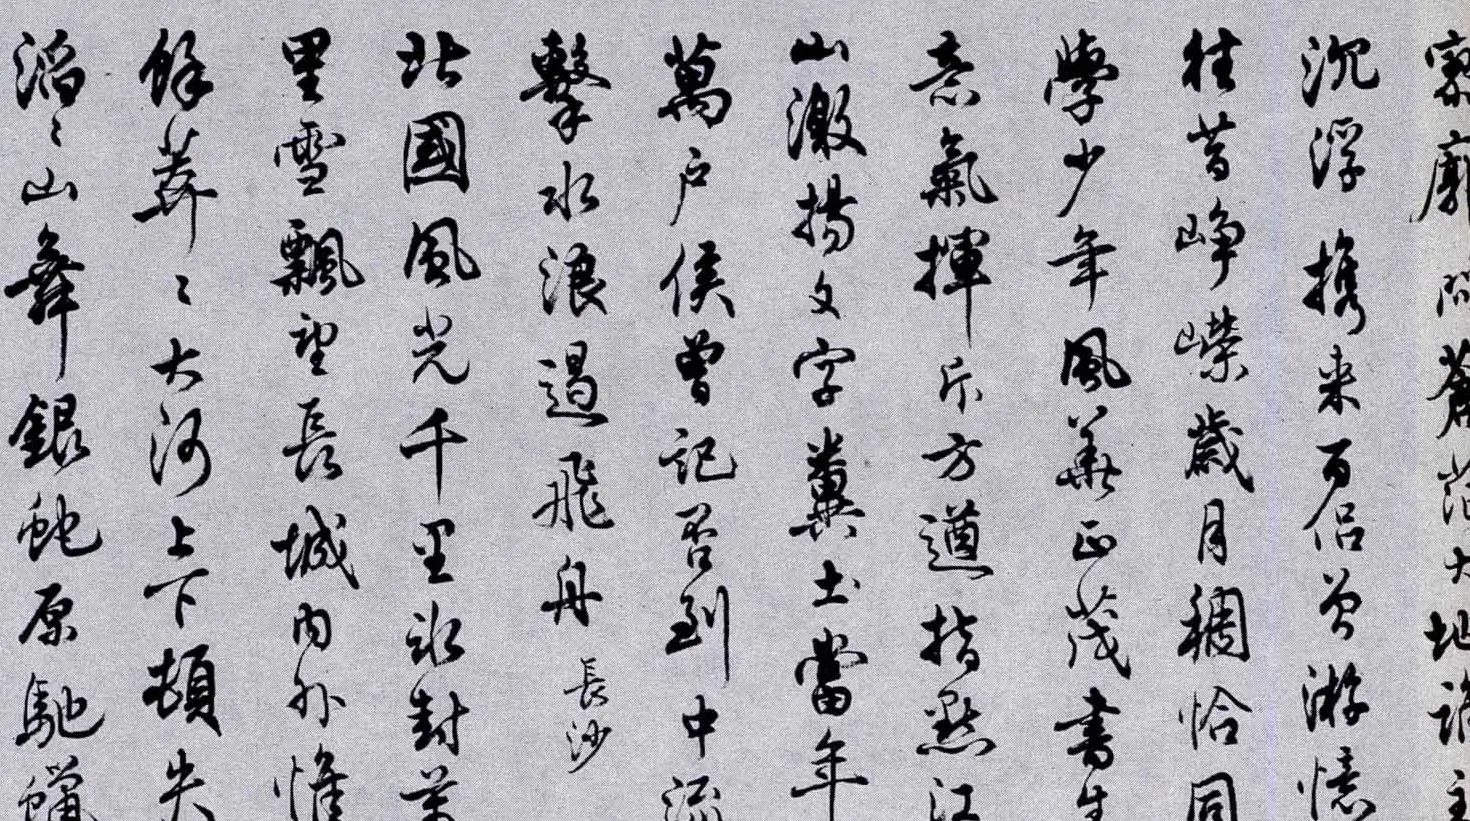 寥廓問蒼茫大地誰主
沉浮攜来百侣曾游憶
往昔崢嶸歲月稠恰同
學少年風華正茂書生
意氣揮斥方遒指點江
山激揚文字糞土當年
萬户侯曾記否到中流
擊水浪遏飛舟
長沙
北國風光千里冰封萬
里雪飄望長城内外惟
餘莽〻大河上下頓失
滔〻山舞銀蛇原馳蠟